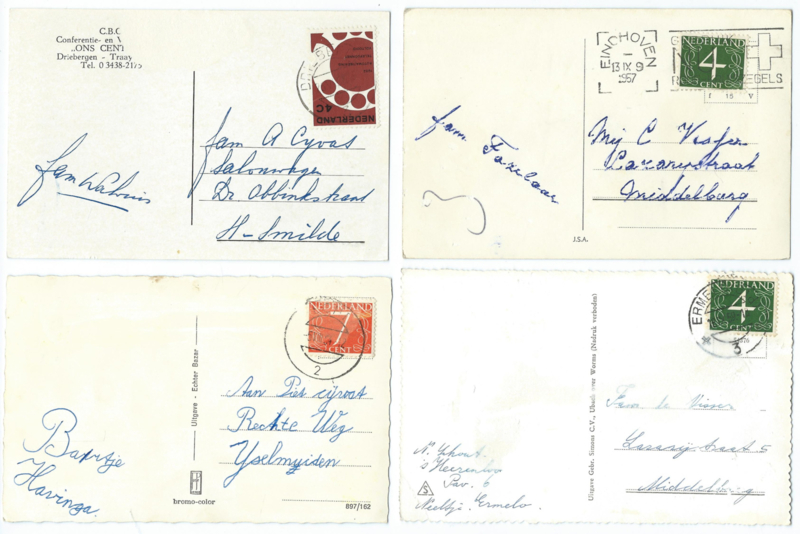 C.B.C
Conferentie- en V
„ONS CENT
Driebergen - Traay
Tel. 0 3438-2175
NEDERLAND
4C
fam A Cyvas
Salonwagen
Dr Obbinkstraat
H-Smilde
fam
EINDHOVEN
13 IX 9
1957
NEDERLAND
4
CENT
ZEGELS
r 15 v
fam Fazelaar
Mej C Visser
Lazarusstraat
Middelburg
J.S.A.
NEDERLAND
7
CENT
2
Uitgave - Echter Bazar
Aan Piet cijvost
Rechte Weg
Yselmuiden
Baertje
Havinga.
bromo-color
897/162
ERME
NEDERLAND
4
CENT
3
Uitgave Gebr. Simons C.V., Ubach over Worms (Nadruk verboden)
Fam de Visser
5
Middelburg
N. Schout
's Heerenloo
Pav. 6
Neeltje Ermelo
S